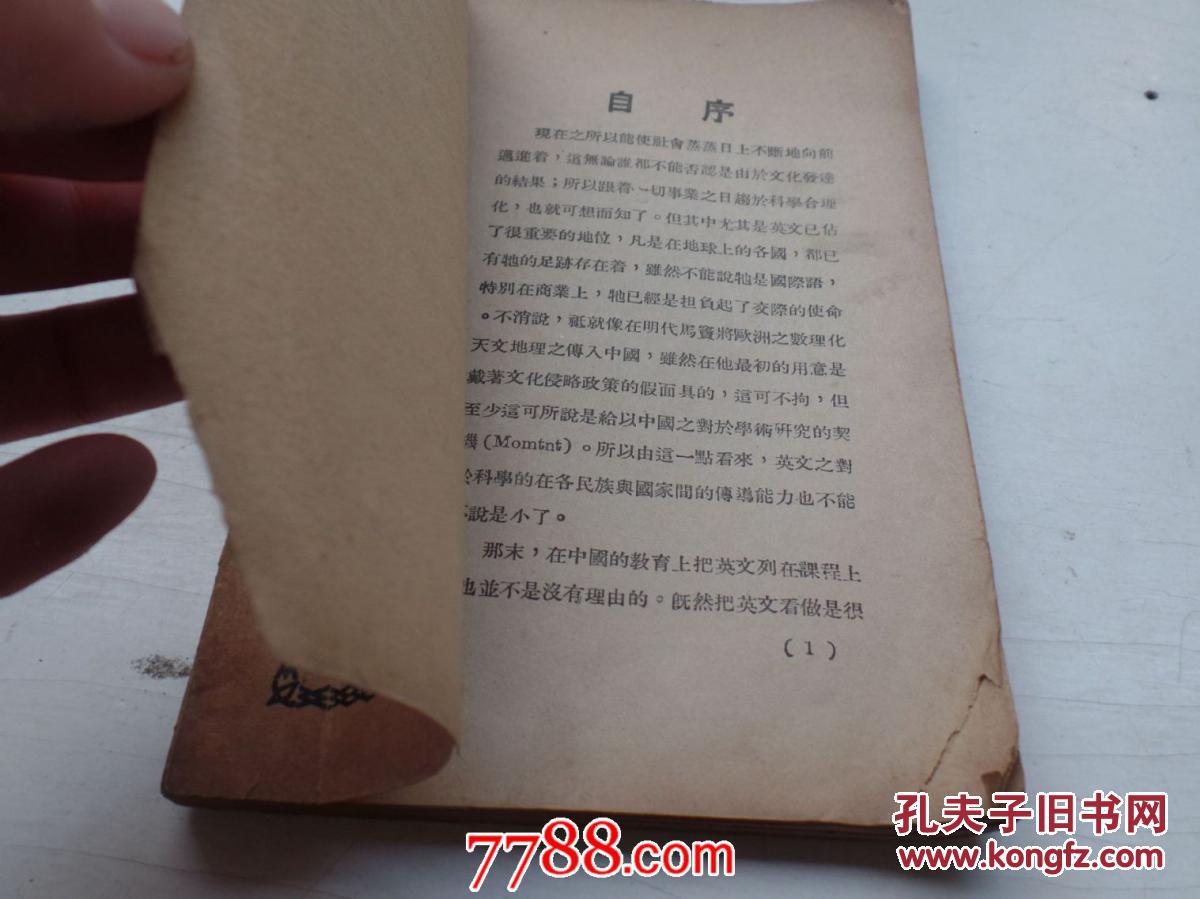 自 序
現在之所以能使社會蒸蒸日上不斷地向前
邁進着，這無論誰都不能否認是由於文化發達
的結果；所以跟着一切事業之日趨於科學合理
化，也就可想而知了。但其中尤其是英文已佔
了很重要的地位，凡是在地球上的各國，都已
有牠的足跡存在着，雖然不能說牠是國際語，
特別在商業上，牠已經是担負起了交際的使命
。不消說，祗就像在明代馬竇將歐洲之數理化
天文地理之傳入中國，雖然在他最初的用意是
戴著文化侵略政策的假面具的，這可不拘，但
至少這可所說是給以中國之對於學術研究的契
機(Momtnt)。所以由這一點看來，英文之對
於科學的在各民族與國家間的傳導能力也不能
說是小了。
那末，在中國的教育上把英文列在課程上
也並不是沒有理由的。既然把英文看做是很
(1)
7788.com
孔夫子旧书网
www.kongfz.com